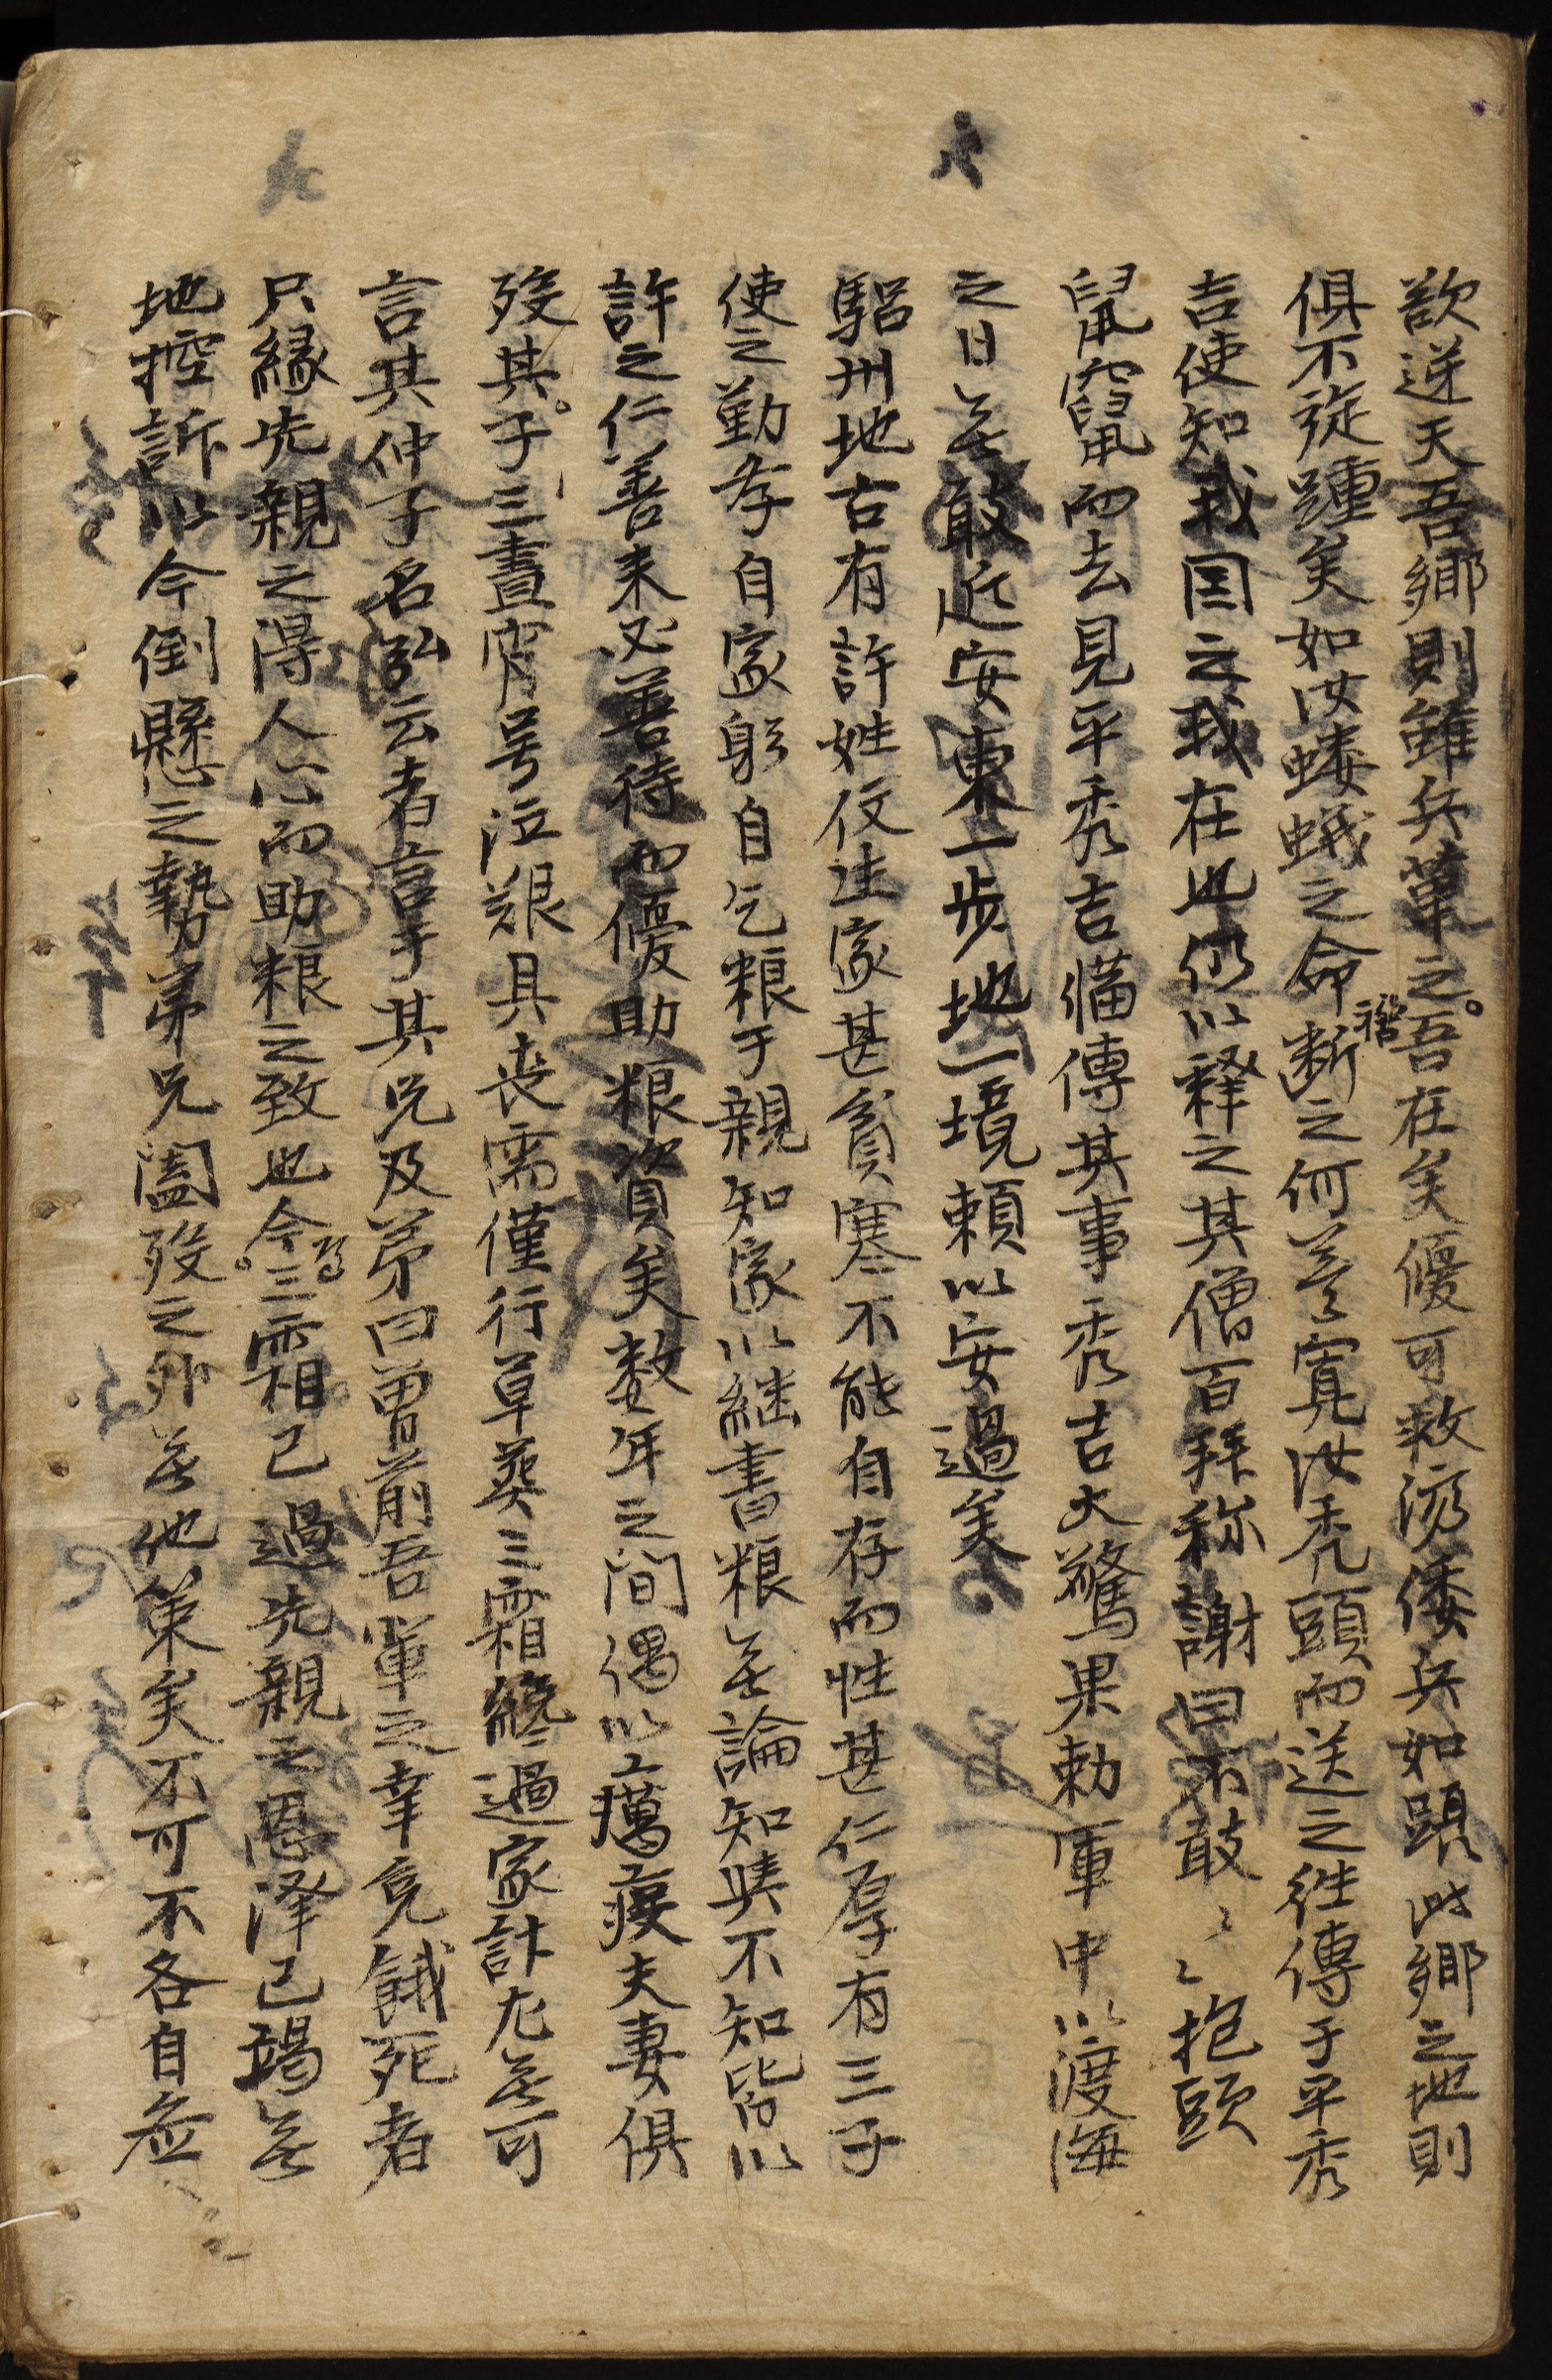 欲逆天吾鄉則雖兵革之吾在矣優可救済倭兵如蹈此鄉之地則
俱不旋踵矣如汝螻蟻之命断之何益寬汝禿頭而送之徃傳于平秀
吉使知我国之我在也仍以釋之其僧百拜称謝曰不敢〻〻抱頭
鼠竄而去見平秀吉備傳其事秀吉大驚果勅軍中以渡海
之日無敢近安東一步地一境頼以安過矣
駋州地古有許姓仅㳒家甚貧寒不能自存而性甚仁厚有三子
使之勤孝自家躬自乞粮于親知家以継書粮無論知與不知皆以
許之仁善来必善待而優助粮資矣数年之间偶以癘疫夫妻俱
殁其子三晝宵号泣艱具丧需僅行草葬三霜纔過家計尤無可
言其仲子名弘云者言于其兄及弟曰曽前吾軰之幸免餓死者
只緣先親之得人心而助粮之致也今三霜已過先親之恩泽已竭無
地控訴以今倒懸之勢弟兄闔殁之外無他策矣不可不各自産